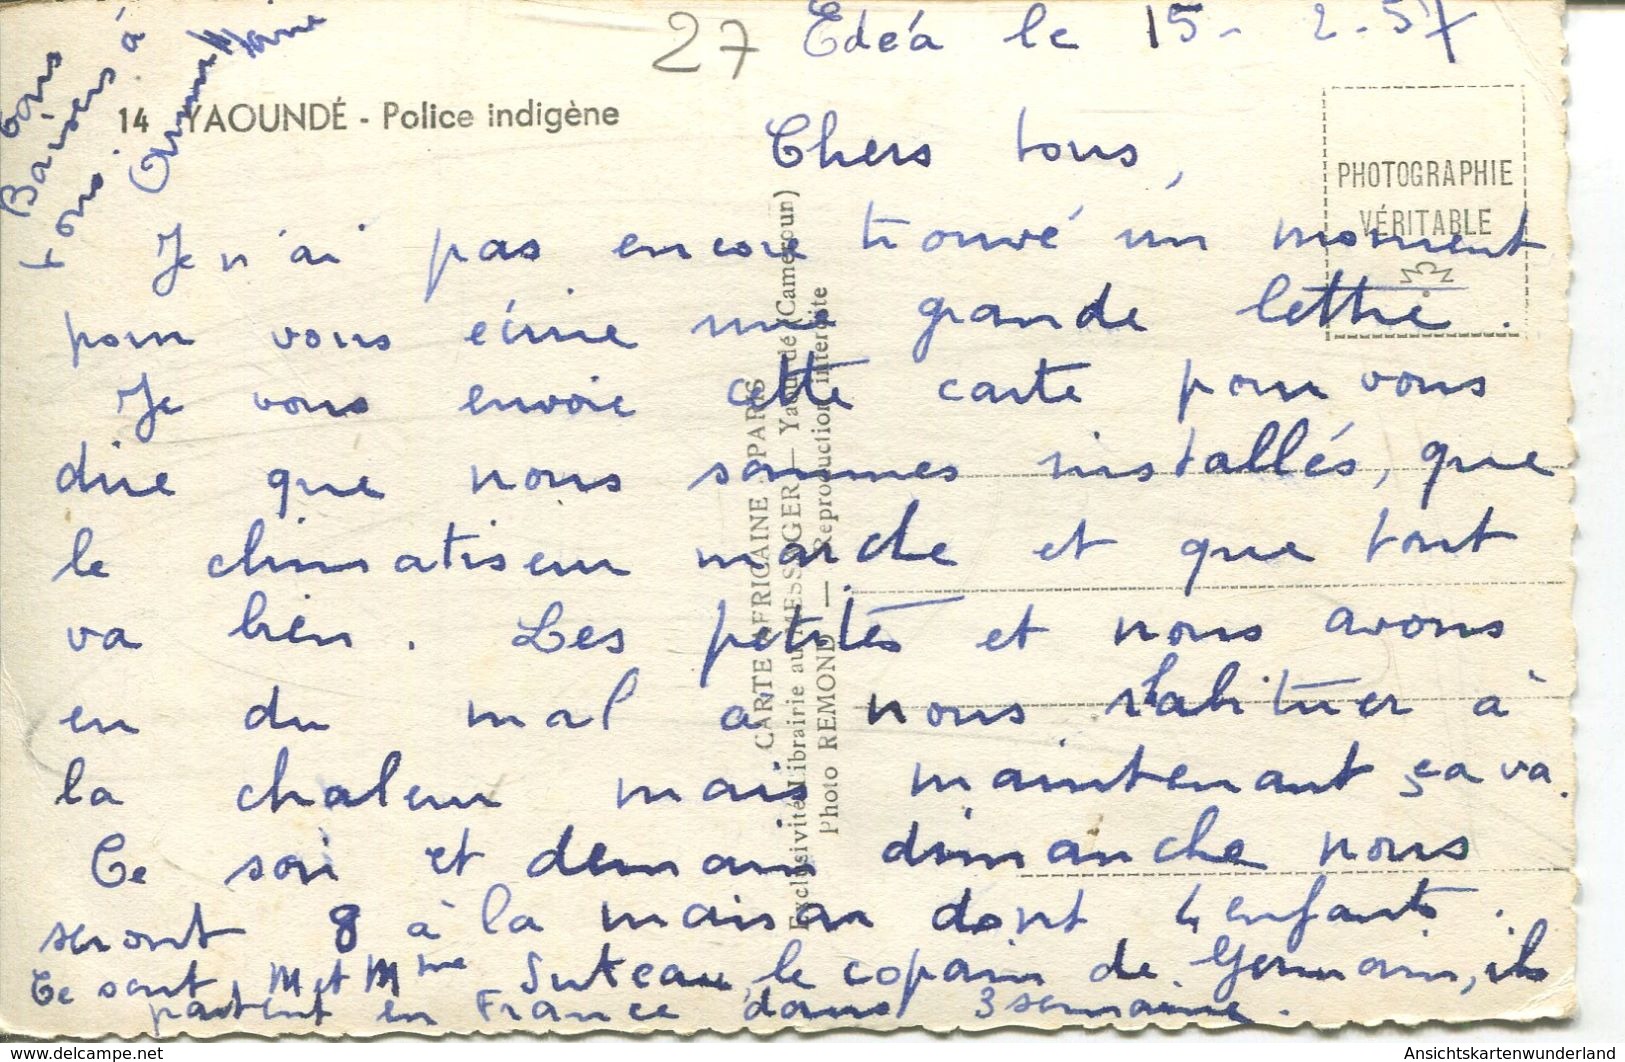 27 Edéa le 15-2-57
14 YAOUNDÉ - Police indigène
PHOTOGRAPHIE
VÉRITABLE
Chers tous,
Je n'ai pas encore trouvé un moment
pour vous écrire une grande lettre.
Je vous envoie cette carte pour vous
dire que nous sommes installés, que
le climatiseur marche et que tout
va bien. Les petites et nous avons
eu du mal à nous habituer à
la chaleur mais maintenant ça va.
Ce soir et demain dimanche nous
seront 8 à la maison dont 4 enfants.
Ce sont M et Mme Suteau, le copain de Germain, ils
partent en France dans 3 semaine.
Baisers à
tous
CARTE AFRICAINE PARIS
Exclusivité Librairie au MESSAGER — Yaoundé (Cameroun)
Photo REMOND — Reproduction interdite
www.delcampe.net
Ansichtskartenwunderland